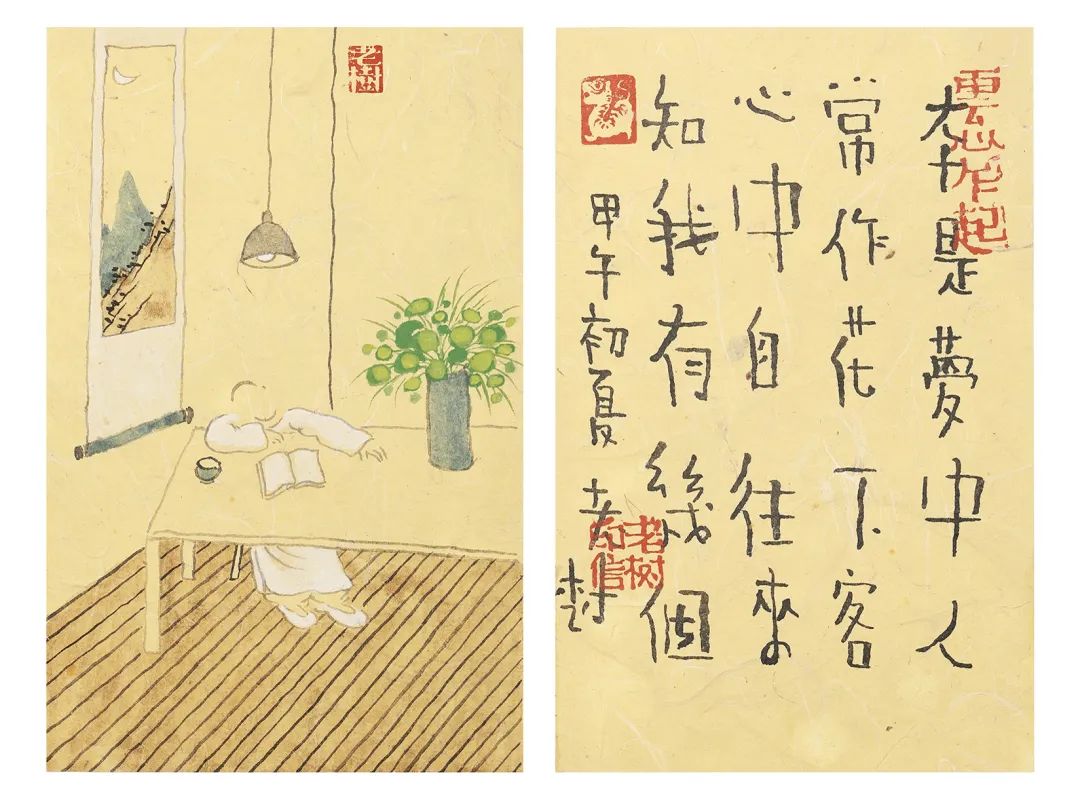 老樹
本是夢中人
常作花下客
心中自往來
知我有幾個
甲午初夏 老樹
老树